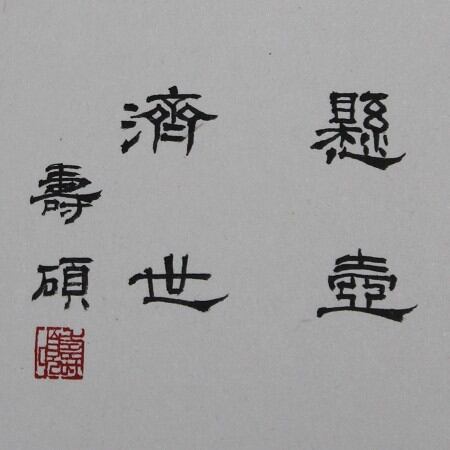 懸壺
濟世
壽碩